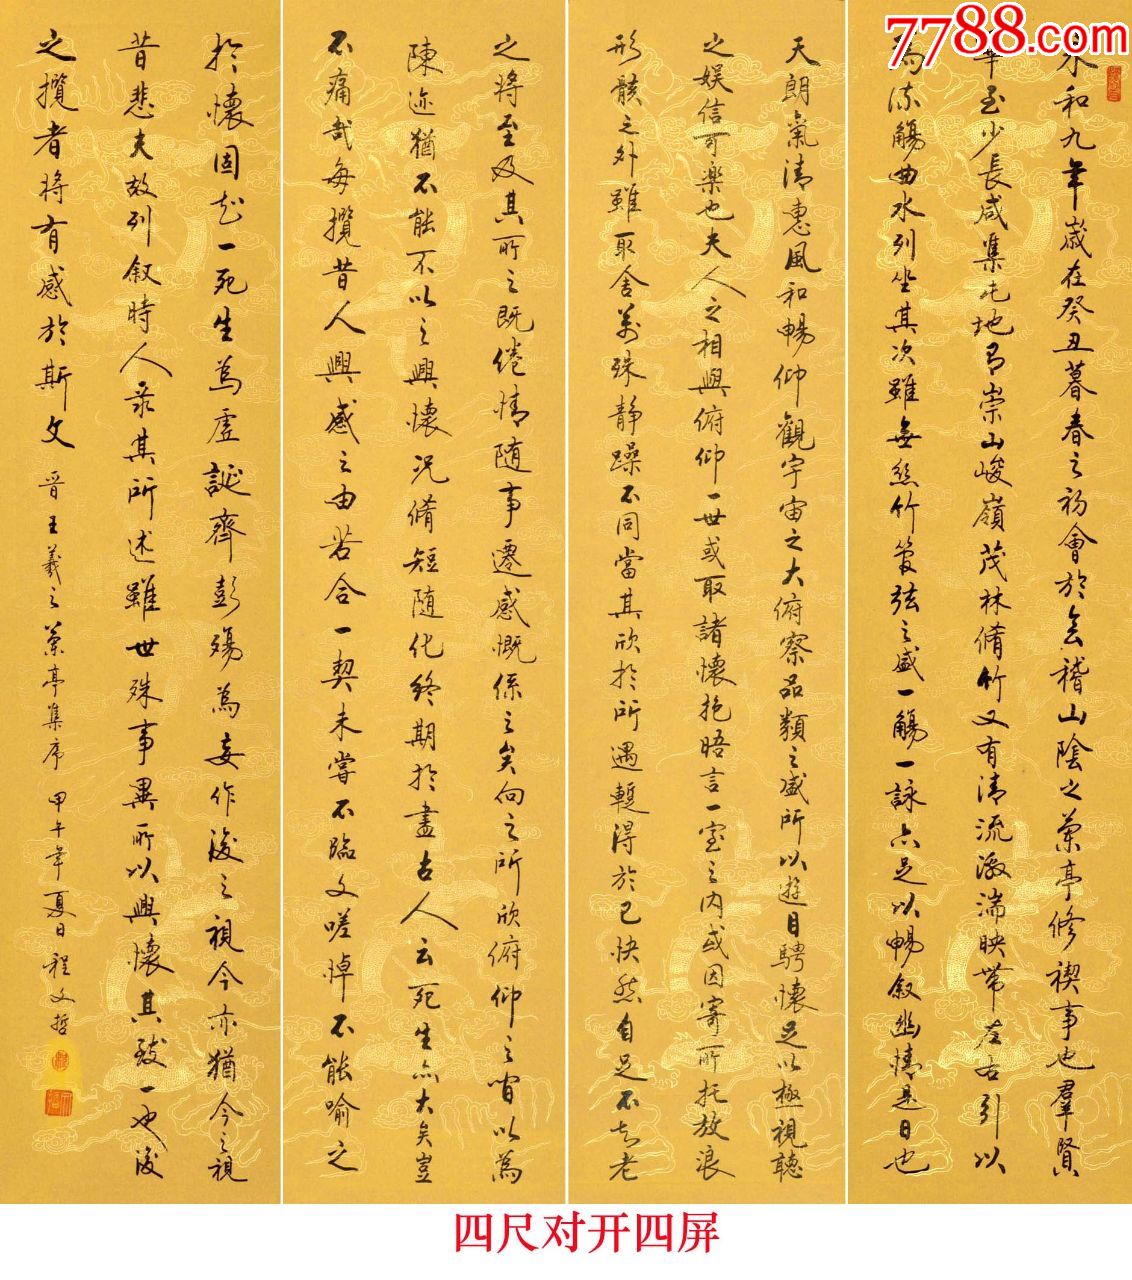 7788.com
永和九年歲在癸丑暮春之初會於會稽山陰之蘭亭修禊事也羣賢
畢至少長咸集此地有崇山峻嶺茂林脩竹又有清流激湍映帶左右引以
為流觴曲水列坐其次雖無絲竹管弦之盛一觴一詠亦足以暢叙幽情是日也
天朗氣清惠風和暢仰觀宇宙之大俯察品類之盛所以遊目騁懷足以極視聽
之娛信可樂也夫人之相與俯仰一世或取諸懷抱晤言一室之內或因寄所托放浪
形骸之外雖取舍萬殊靜躁不同當其欣於所遇暫得於己快然自足不知老
之將至及其所之既倦情隨事遷感慨係之矣向之所欣俯仰之間以為
陳迹猶不能不以之興懷況脩短隨化終期於盡古人云死生亦大矣豈
不痛哉每攬昔人興感之由若合一契未嘗不臨文嗟悼不能喻之
於懷固知一死生為虛誕齊彭殤為妄作後之視今亦猶今之視
昔悲夫故列叙時人录其所述雖世殊事異所以興懷其致一也後
之攬者將有感於斯文 晉王羲之蘭亭集序 甲午年夏日程文哲
四尺对开四屏